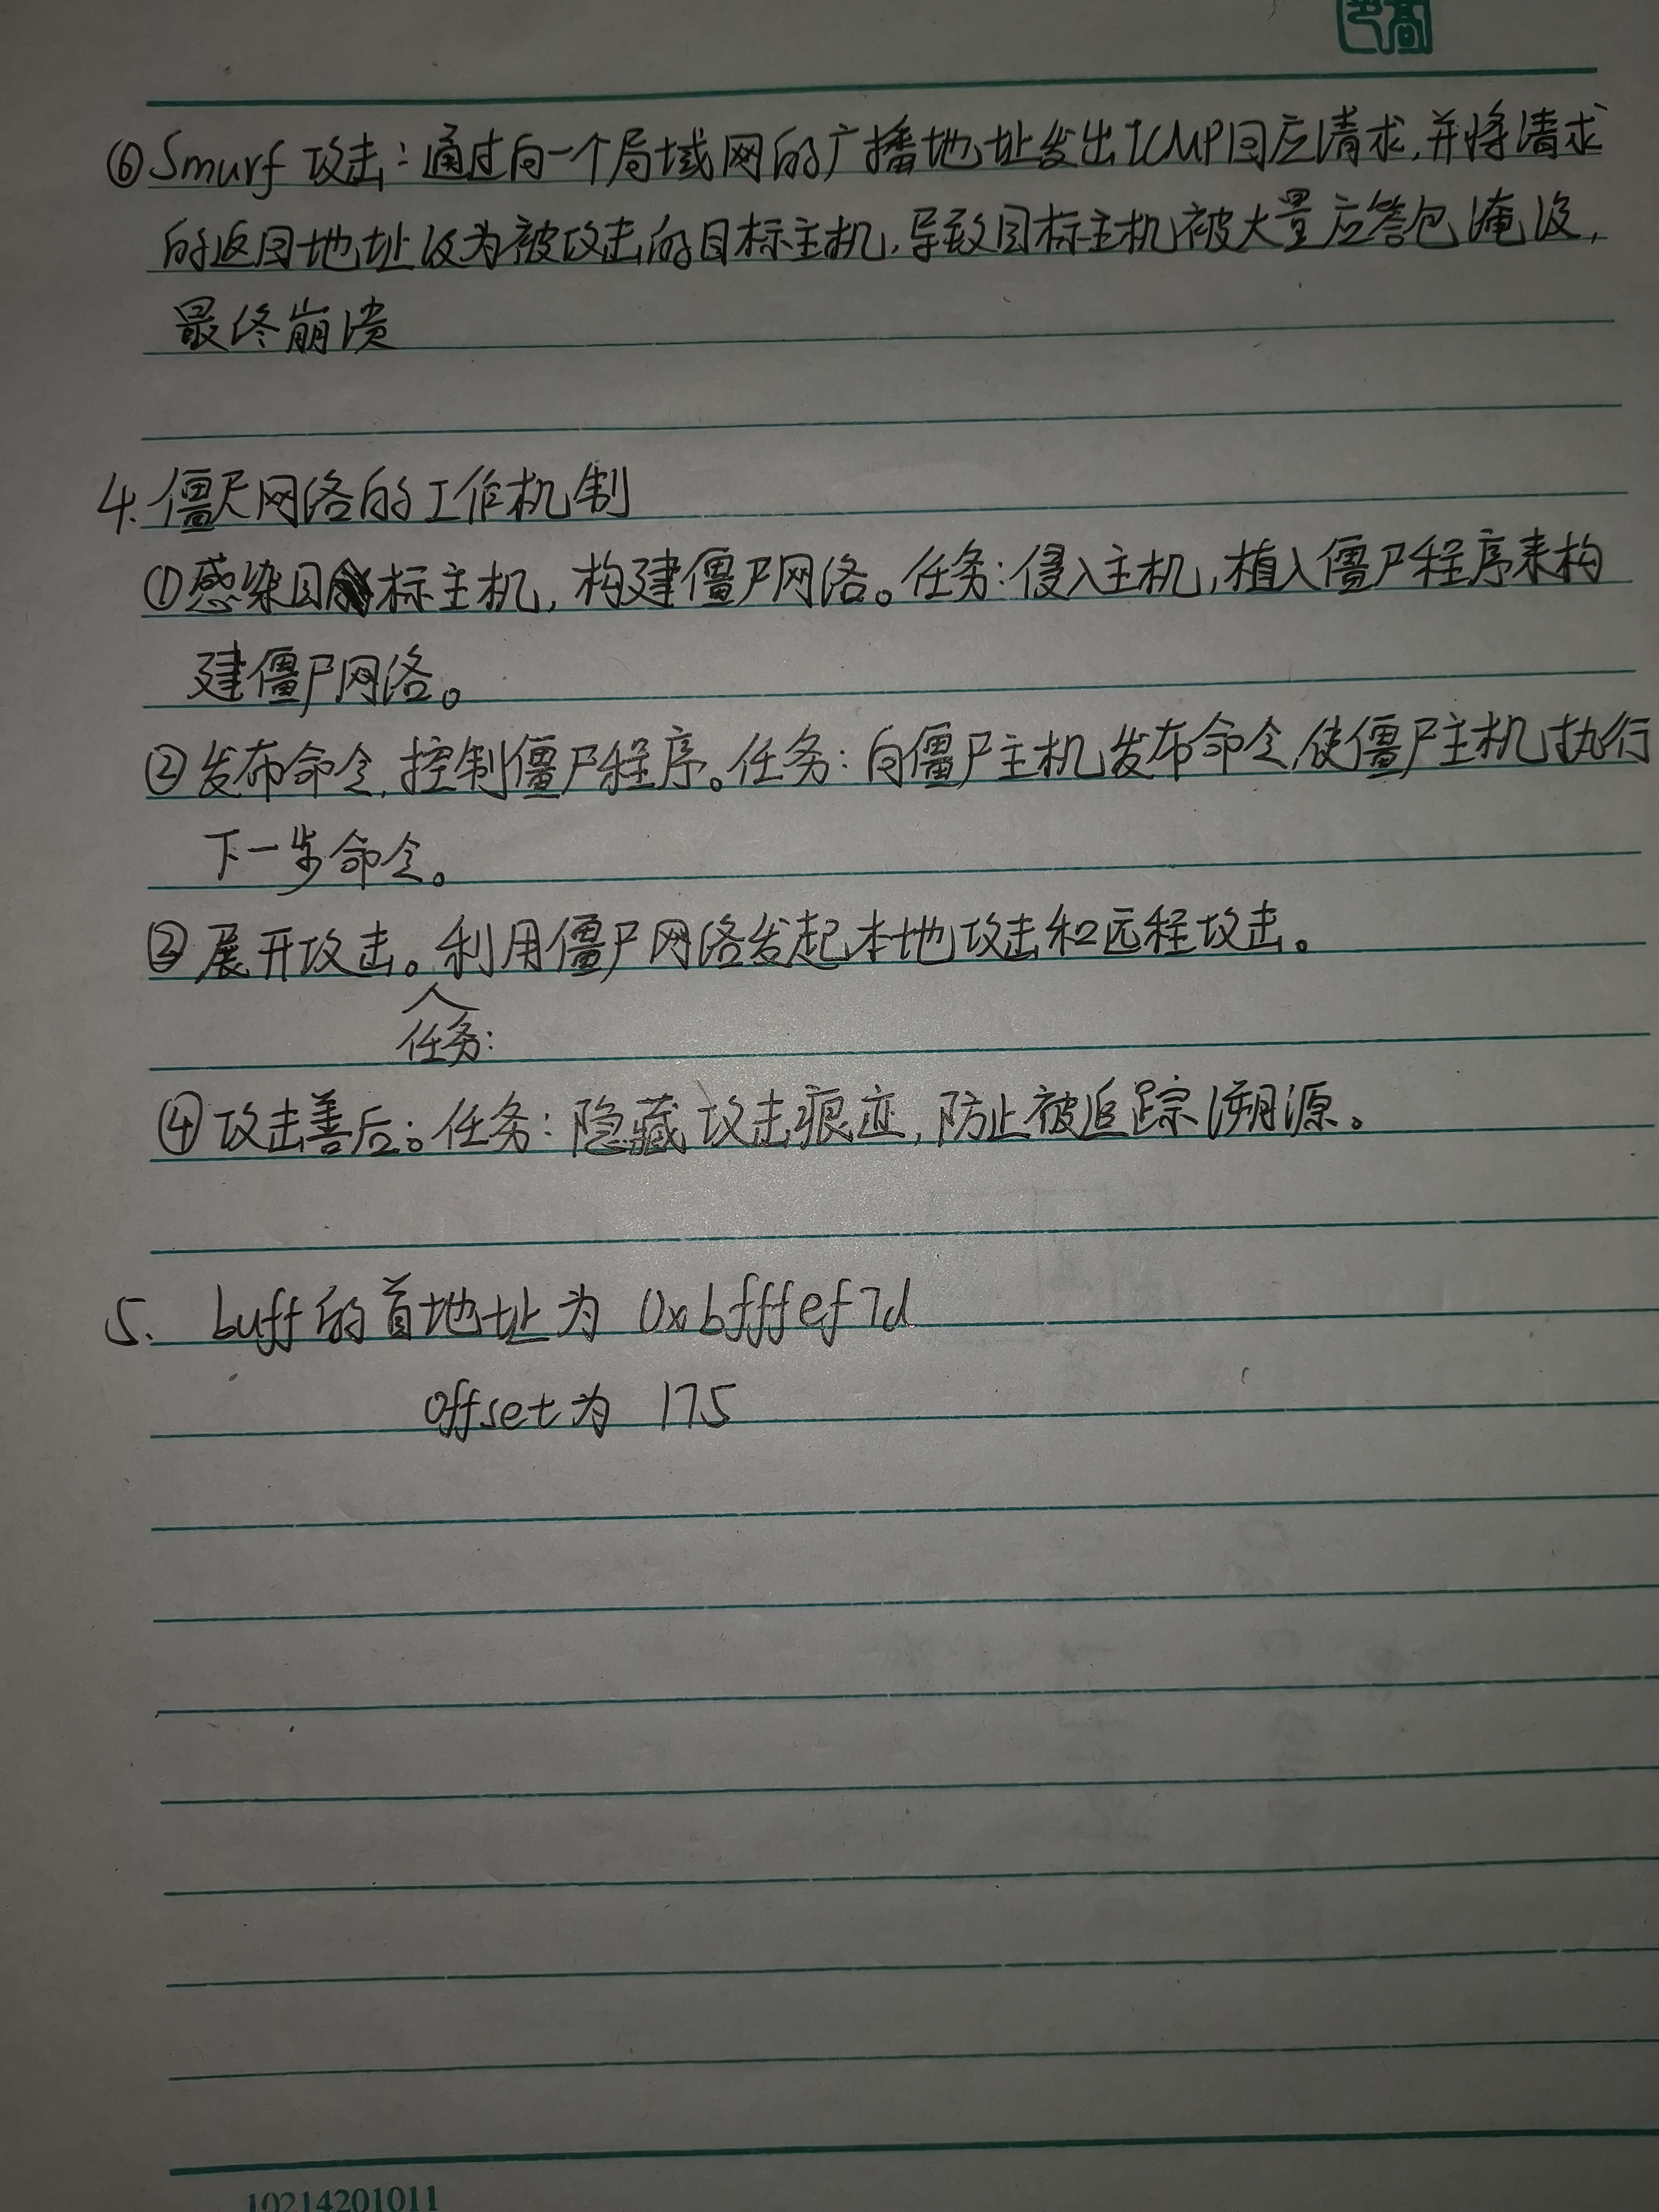 ⑥Smurf 攻击：通过向一个局域网的广播地址发出ICMP回应请求,并将请求
的返回地址设为被攻击的目标主机,导致目标主机被大量应答包淹没,
最终崩溃
4.僵尸网络的工作机制
①感染目标主机,构建僵尸网络。任务:侵入主机,植入僵尸程序来构
建僵尸网络。
②发布命令,控制僵尸程序。任务:向僵尸主机发布命令,使僵尸主机执行
下一步命令。
③展开攻击。利用僵尸网络发起本地攻击和远程攻击。
任务:
④攻击善后。任务:隐藏攻击痕迹,防止被追踪溯源。
5. buff的首地址为 0xbfffef7d
offset为 175
10214201011